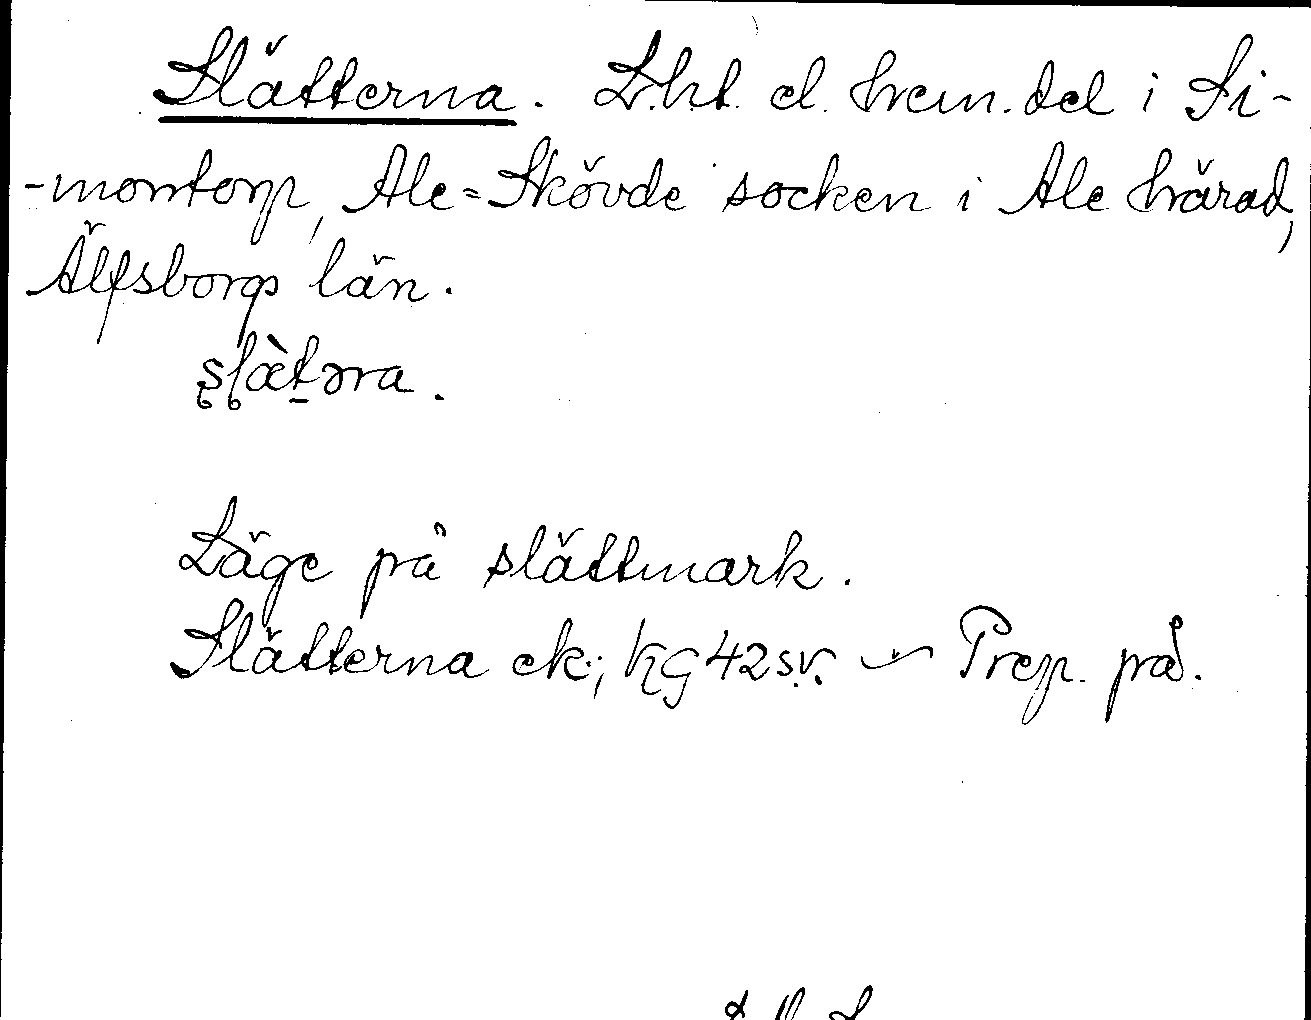 Slätterna. Lht. el. hem.del i Si-
-montorp, Ale-Skövde socken i Ale härad,
Älfsborgs län.
slæ̀təra.
Läge på slättmark.
Slätterna ek.; KG 42 sv. ~ Prep. på.